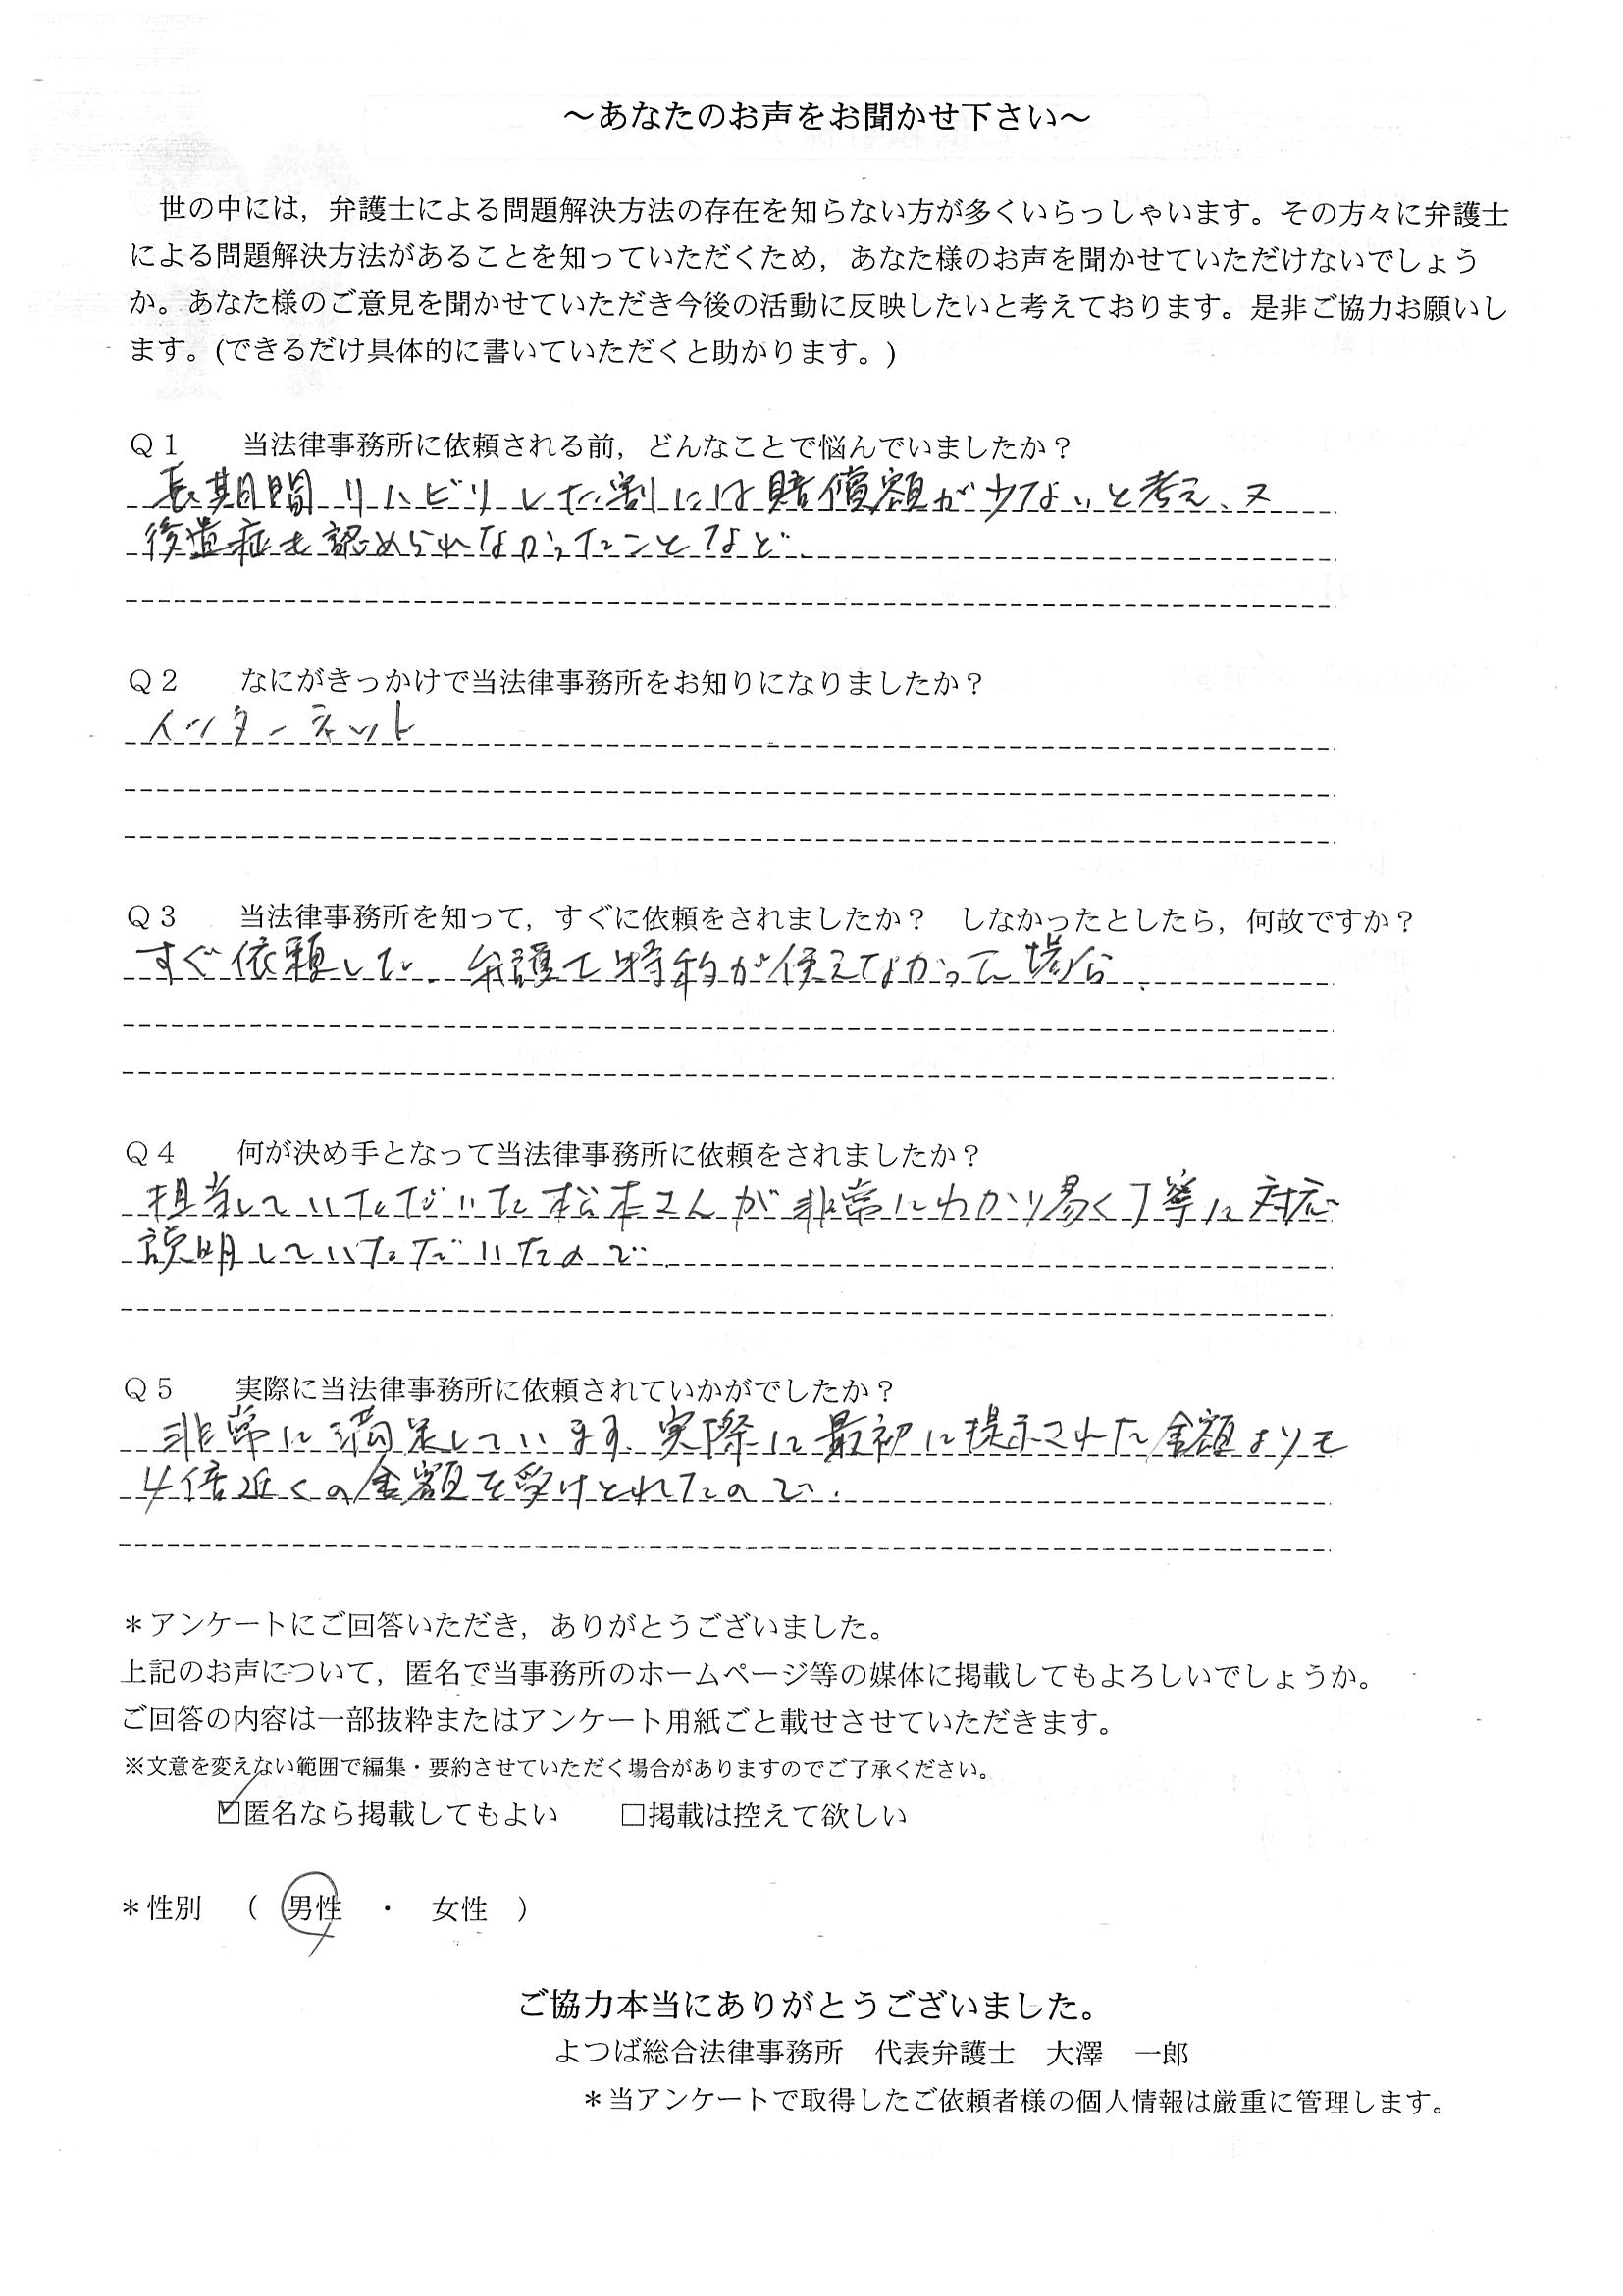 ～あなたのお声をお聞かせ下さい～
世の中には，弁護士による問題解決方法の存在を知らない方が多くいらっしゃいます。その方々に弁護士
による問題解決方法があることを知っていただくため，あなた様のお声を聞かせていただけないでしょう
か。あなた様のご意見を聞かせていただき今後の活動に反映したいと考えております。是非ご協力お願いし
ます。(できるだけ具体的に書いていただくと助かります。)
Ｑ１　当法律事務所に依頼される前，どんなことで悩んでいましたか？
長期間リハビリした割には賠償額が少ないと考え、又
後遺症も認められなかったことなど.
Ｑ２　なにがきっかけで当法律事務所をお知りになりましたか？
インターネット
Ｑ３　当法律事務所を知って，すぐに依頼をされましたか？　しなかったとしたら，何故ですか？
すぐ依頼した. 弁護士特約が使えなかった場合.
Ｑ４　何が決め手となって当法律事務所に依頼をされましたか？
担当していただいた松本さんが非常にわかり易く丁寧に対応
説明していただいたので.
Ｑ５　実際に当法律事務所に依頼されていかがでしたか？
非常に満足しています. 実際に最初に提示された金額よりも
4倍近くの金額を受けとれたので.
＊アンケートにご回答いただき，ありがとうございました。
上記のお声について，匿名で当事務所のホームページ等の媒体に掲載してもよろしいでしょうか。
ご回答の内容は一部抜粋またはアンケート用紙ごと載せさせていただきます。
※文意を変えない範囲で編集・要約させていただく場合がありますのでご了承ください。
☑匿名なら掲載してもよい　□掲載は控えて欲しい
＊性別　（　男性　・　女性　）
ご協力本当にありがとうございました。
よつば総合法律事務所　代表弁護士　大澤　一郎
＊当アンケートで取得したご依頼者様の個人情報は厳重に管理します。